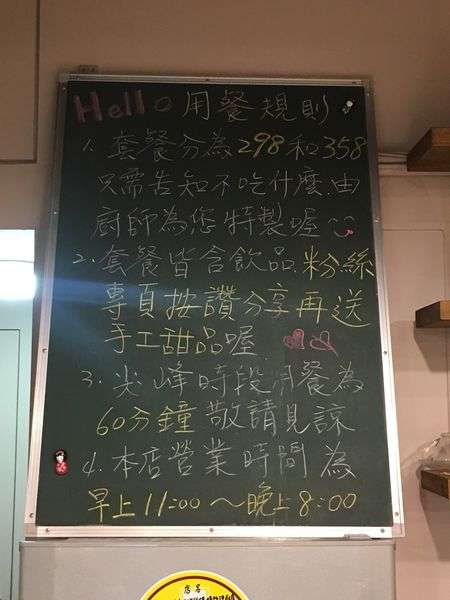 Hello 用餐規則
1. 套餐分為298和358
只需告知不吃什麼.由
廚師為您特製喔
2. 套餐皆含飲品.粉絲
專頁按讚分享再送
手工甜品喔
3. 尖峰時段用餐為
60分鐘 敬請見諒
4. 本店營業時間為
早上11:00~晚上8:00
店名